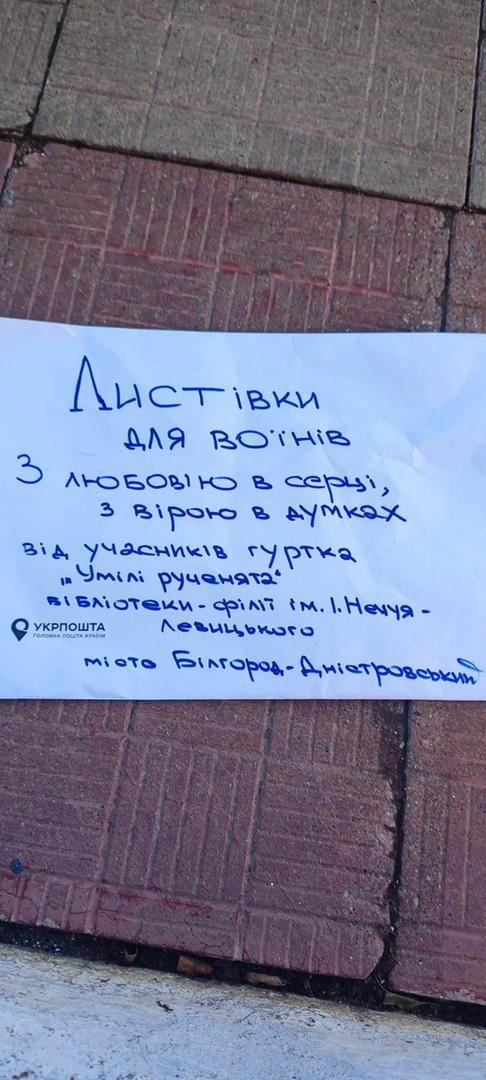 Листівки
для воїнів
З любов'ю в серці,
з вірою в думках
від учасників гуртка
„Умілі рученята“
бібліотеки-філії ім. І. Нечуя-
Левицького
УКРПОШТА
ГОЛОВНА ПОШТА КРАЇНИ
місто Білгород-Дністровський